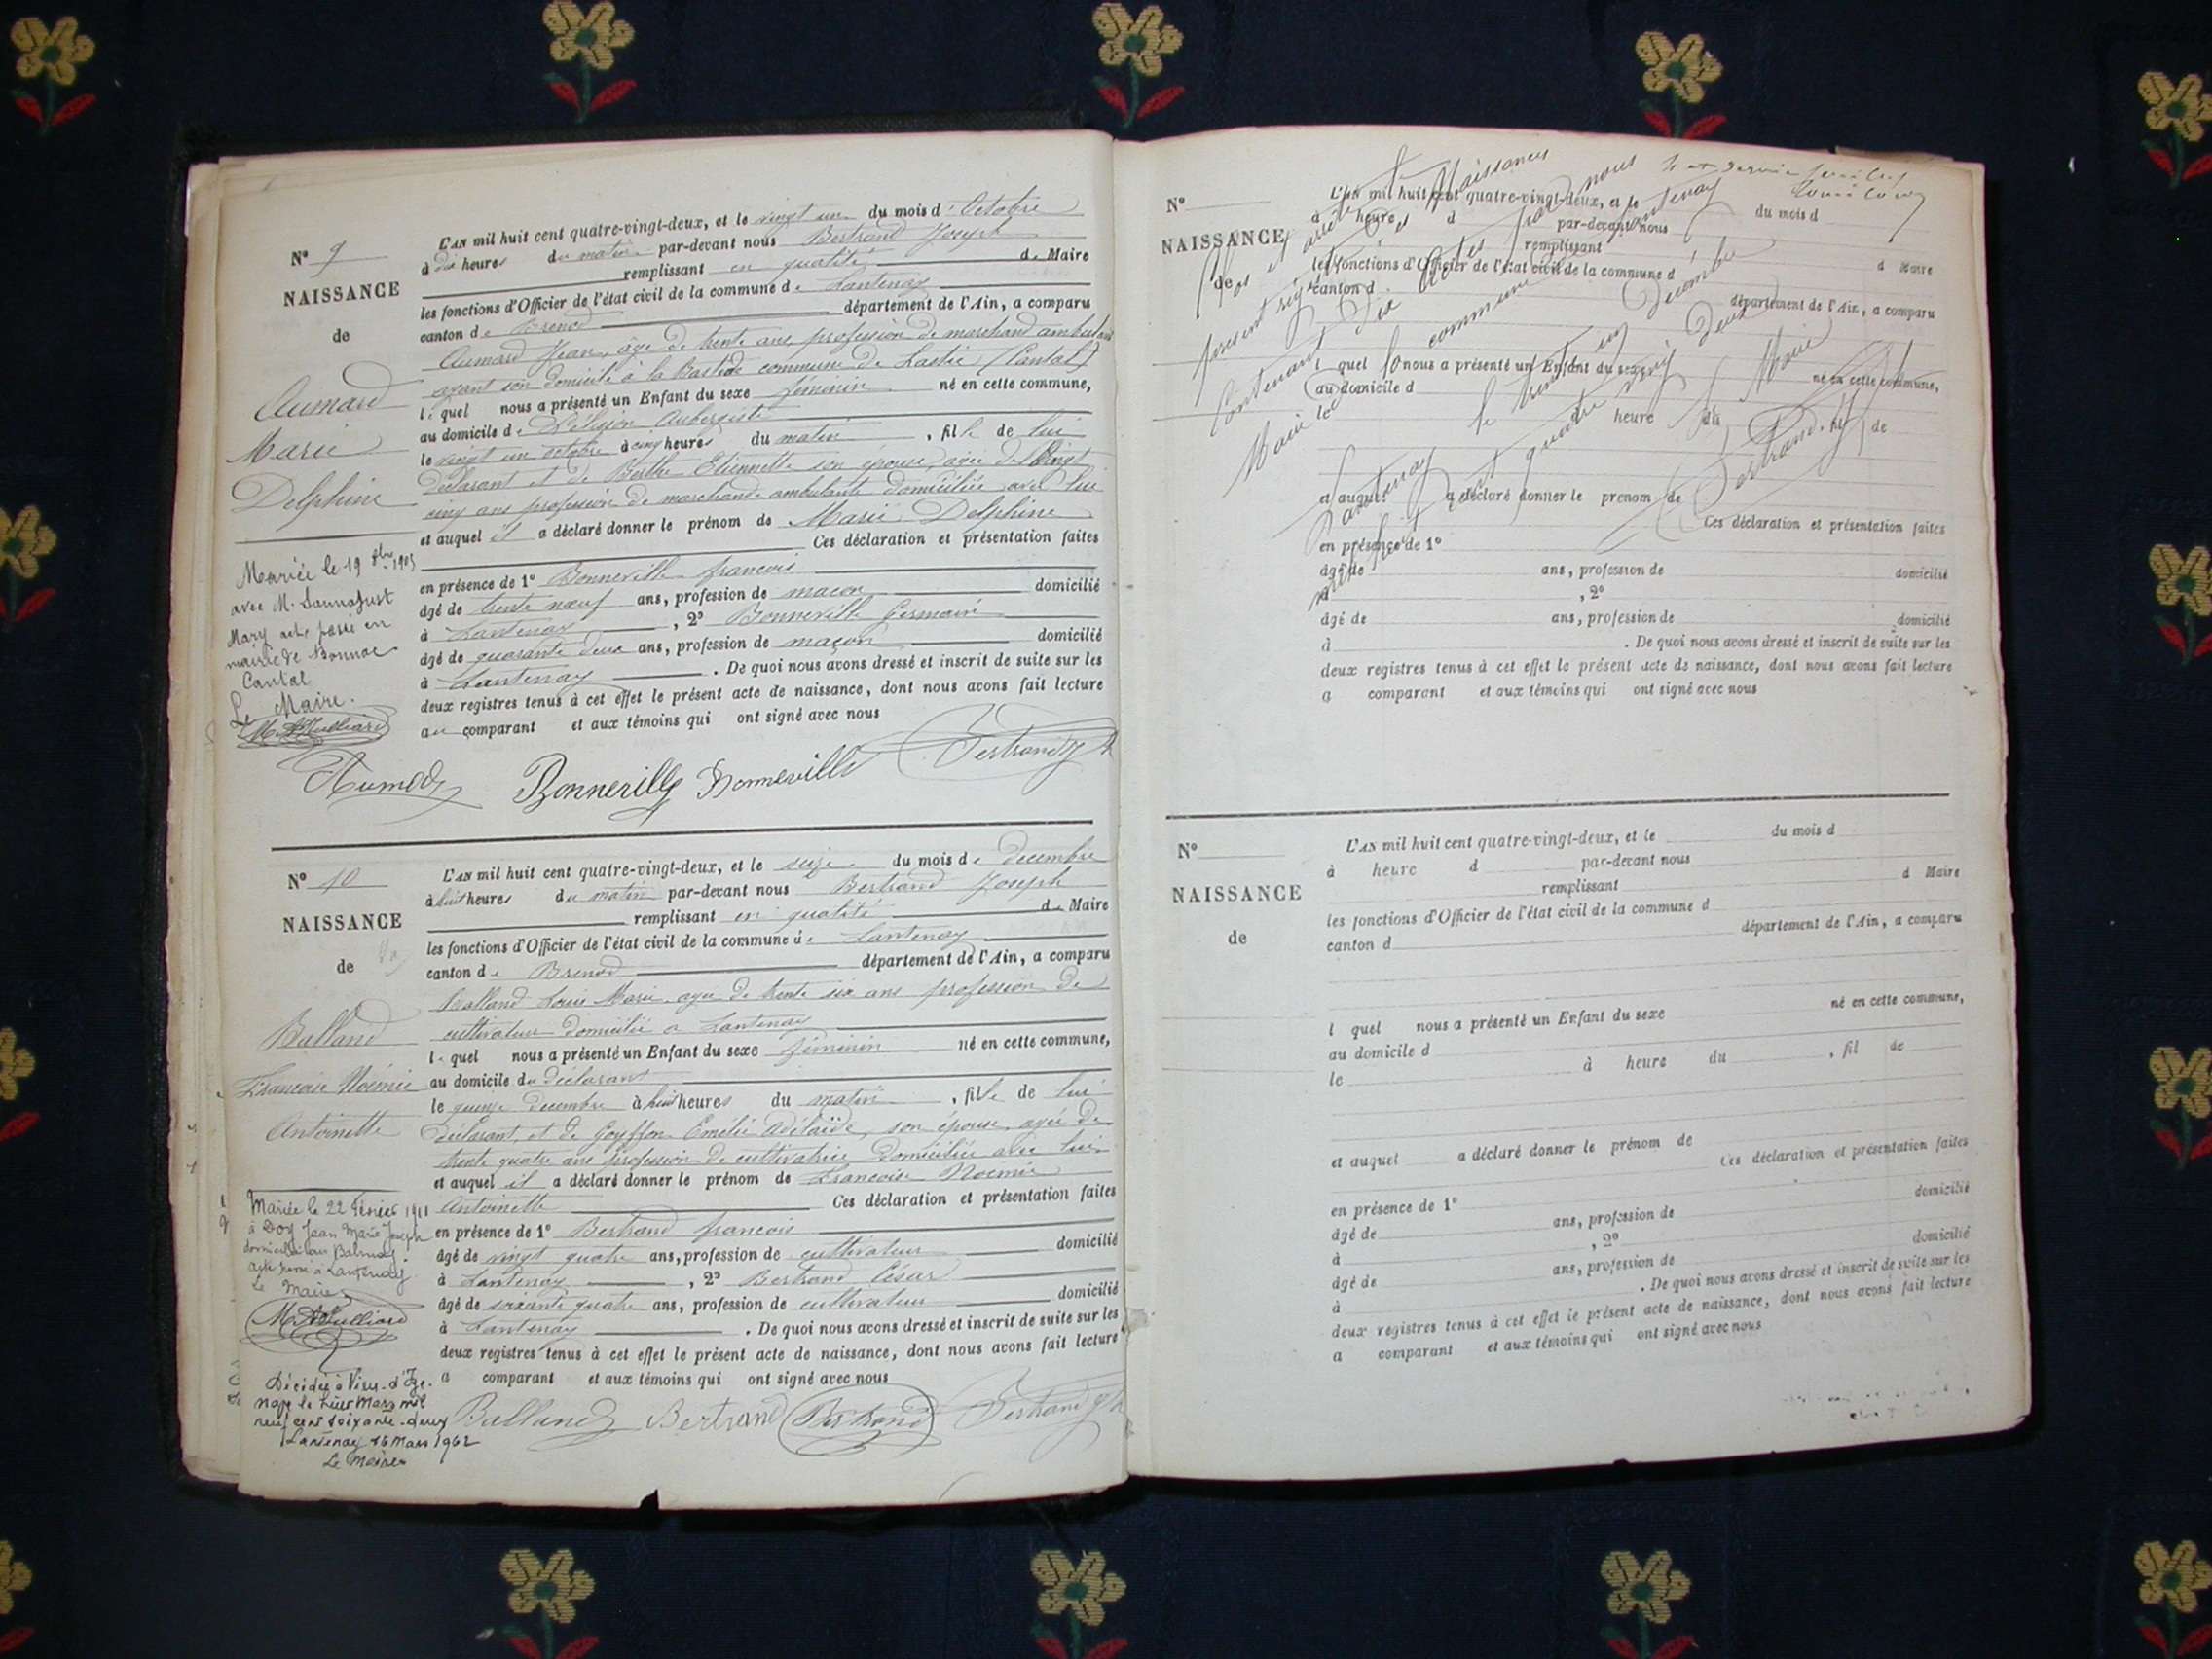 N° 9
NAISSANCE
de
Aumard
Marie
Delphine
Mariée le 19 8bre 1905
avec M.
Mary acte passé en
mairie de Bonnac
Cantal
Le Maire.
L'AN mil huit cent quatre-vingt-deux, et le vingt un du mois d'Octobre
à dix heures du matin par-devant nous Bertrand Joseph
remplissant en qualité de Maire
les fonctions d'Officier de l'état civil de la commune de Lantenay
canton de Brenod département de l'Ain, a comparu
Aumard Jean, âgé de trente ans, profession de marchand ambulant
ayant son domicile à la Bastide commune de Lastic (Cantal)
lequel nous a présenté un Enfant du sexe féminin né en cette commune,
au domicile de Aubergiste
le vingt un octobre à cinq heures du matin, fille de lui
déclarant et de Berthe Etiennette son épouse, agée de vingt
cinq ans profession de marchande ambulante domiciliée avec lui
et auquel il a déclaré donner le prénom de Marie Delphine
Ces déclaration et présentation faites
en présence de 1° Bonneville françois
âgé de trente neuf ans, profession de maçon domicilié
à Lantenay, 2° Bonneville Germain
âgé de quarante deux ans, profession de maçon domicilié
à Lantenay. De quoi nous avons dressé et inscrit de suite sur les
deux registres tenus à cet effet le présent acte de naissance, dont nous avons fait lecture
au comparant et aux témoins qui ont signé avec nous
Bonneville Bonneville Bertrand Jh
N° 10
NAISSANCE
de
Balland
Francoise Noémie
Antoinette
Mariée le 22 Février 1911
à Doy Jean Marie Joseph
Le Maire
Décédée à Vieu-d'Ize-
nave le huit Mars mil
neuf cent soixante-deux
Lantenay 16 Mars 1962
Le Maire
L'AN mil huit cent quatre-vingt-deux, et le seize du mois de decembre
à huit heures du matin par-devant nous Bertrand Joseph
remplissant en qualité de Maire
les fonctions d'Officier de l'état civil de la commune de Lantenay
canton de Brenod département de l'Ain, a comparu
Balland Louis Marie agé de trente six ans profession de
cultivateur domicilié a Lantenay
lequel nous a présenté un Enfant du sexe féminin né en cette commune,
au domicile du déclarant
le quinze decembre à huit heures du matin, fille de lui
déclarant, et de Goyffon Emélie Adélaïde, son épouse, agée de
trente quatre ans profession de cultivatrice domiciliée avec lui
et auquel il a déclaré donner le prénom de Francoise Noemie
Antoinette Ces déclaration et présentation faites
en présence de 1° Bertrand francois
âgé de vingt quatre ans, profession de cultivateur domicilié
à Lantenay, 2° Bertrand César
âgé de soixante quatre ans, profession de cultivateur domicilié
à Lantenay. De quoi nous avons dressé et inscrit de suite sur les
deux registres tenus à cet effet le présent acte de naissance, dont nous avons fait lecture
a comparant et aux témoins qui ont signé avec nous
Balland Bertrand Bertrand Bertrand Jh
N°
NAISSANCE
de
L'AN mil huit cent quatre-vingt-deux, et le du mois d
à heure d par-devant nous
remplissant d Maire
les fonctions d'Officier de l'état civil de la commune d
canton d département de l'Ain, a comparu
l quel nous a présenté un Enfant du sexe né en cette commune,
au domicile d
le à heure du , fil de
et auquel a déclaré donner le prénom de
Ces déclaration et présentation faites
en présence de 1°
âgé de ans, profession de domicilié
à , 2°
âgé de ans, profession de domicilié
à . De quoi nous avons dressé et inscrit de suite sur les
deux registres tenus à cet effet le présent acte de naissance, dont nous avons fait lecture
a comparant et aux témoins qui ont signé avec nous
Clos et arrêté le
présent registre des Naissances
Contenant Dix Actes par nous
Maire de la commune de Lantenay
Lantenay le trente un Decembre
mil huit cent quatre vingt Deux
Le Maire
Bertrand Jh
N°
NAISSANCE
de
L'AN mil huit cent quatre-vingt-deux, et le du mois d
à heure d par-devant nous
remplissant d Maire
les fonctions d'Officier de l'état civil de la commune d
canton d département de l'Ain, a comparu
l quel nous a présenté un Enfant du sexe né en cette commune,
au domicile d
le à heure du , fil de
et auquel a déclaré donner le prénom de
Ces déclaration et présentation faites
en présence de 1°
âgé de ans, profession de domicilié
à , 2°
âgé de ans, profession de domicilié
à . De quoi nous avons dressé et inscrit de suite sur les
deux registres tenus à cet effet le présent acte de naissance, dont nous avons fait lecture
a comparant et aux témoins qui ont signé avec nous